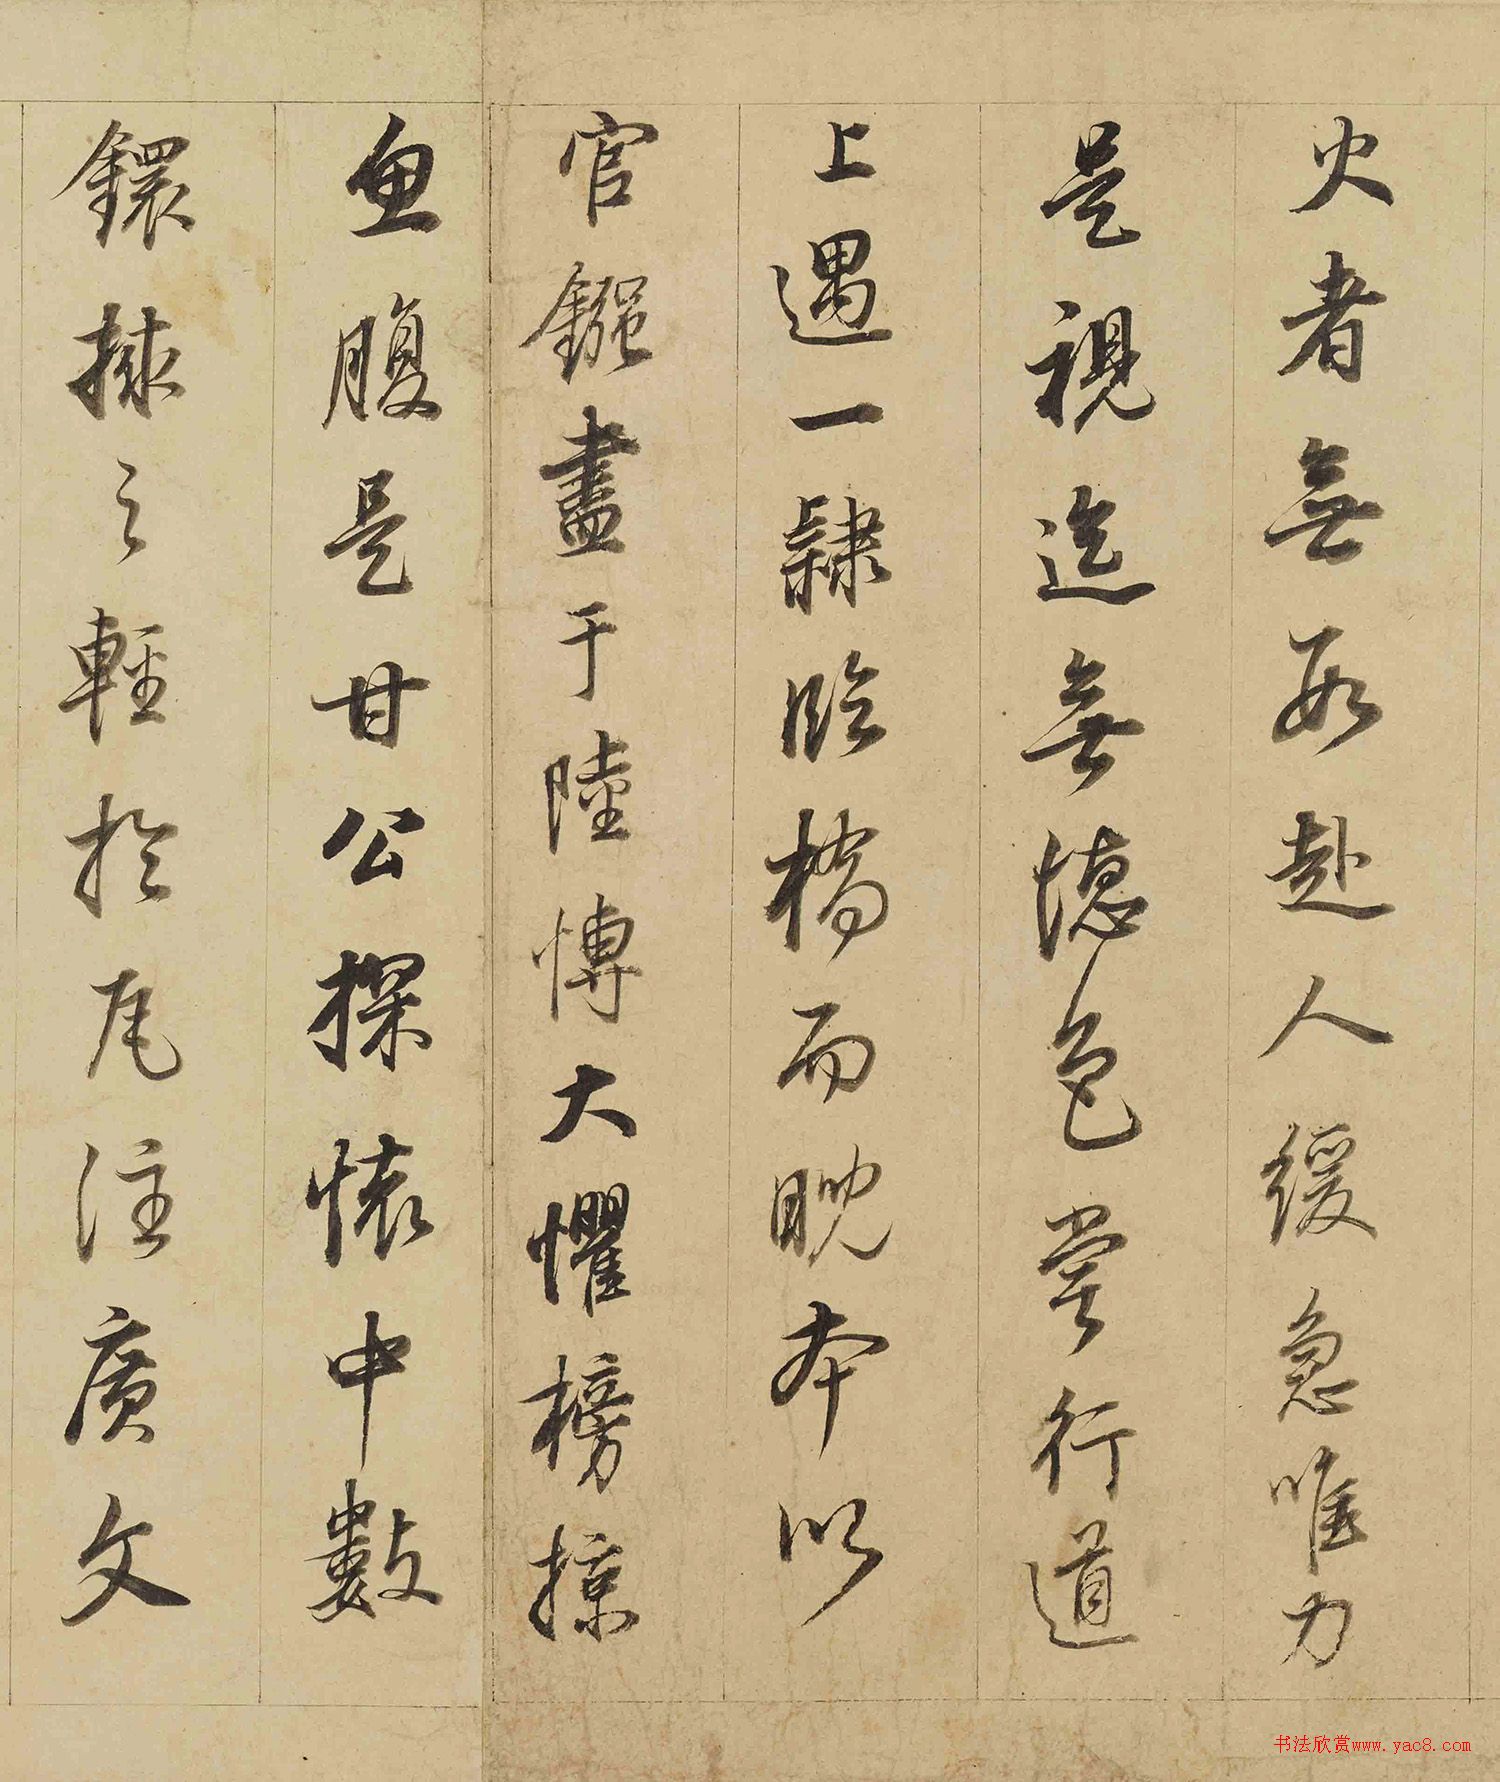 火者無不赴人緩急唯力
是視迄無德色嘗行道
上遇一隸臨橋而睨本以
官鏹盡于陸博大懼榜掠
魚腹是甘公探懷中數
鐶捄之輕於尾注廣文
书法欣赏www.yac8.com